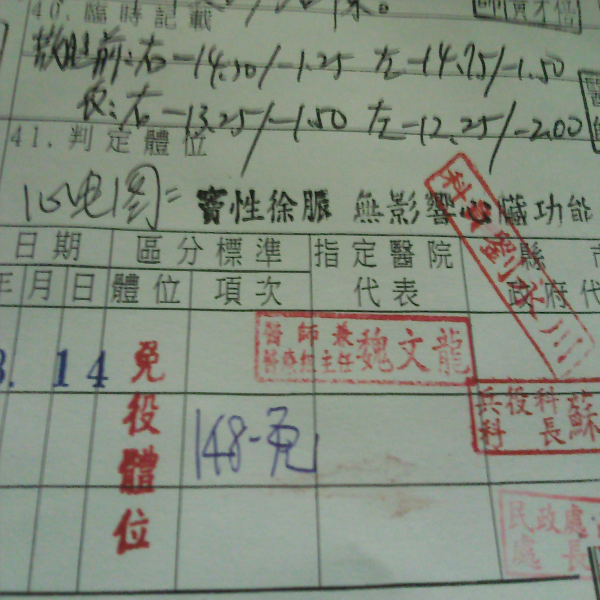 40.臨時記載
散瞳前:右-14.50/-1.25 左-14.75/-1.50
後:右-13.25/-1.50 左-12.25/-2.00
41.判定體位
心电图= 竇性徐脈 無影響心臟功能
日期 區分標準 指定醫院 縣市
年月日 體位 項次 代表 政府代
醫師兼
主任 魏文龍
14 免役體位
148-免
兵役科 蘇
科長
民政處
處長